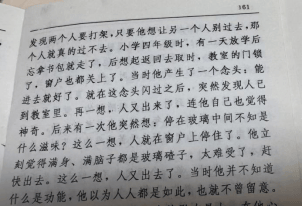 161
发现两个人要打架,只要他想让另一个人别过去,那
个人就真的过不去。小学四年级时,有一天放学后
忘拿书包就走了,后想起返回去取时,教室的门锁
了,窗户也都关上了。当时他产生了一个念头:能
进去就好了。就在这念头闪过之后,突然发现人已
到教室里。再一想,人又出来了,连他自己也觉得
神奇。后来有一次他突然想,停在玻璃中间不知是
什么滋味?这么一想,人就在窗户上停住了。他立
刻觉得满身、满脑子都是玻璃碴子,太难受了,赶
快出去。这么一想,人又出去了。当时他并不知道
什么是功能,他以为人人都是如此,也就不曾留意。